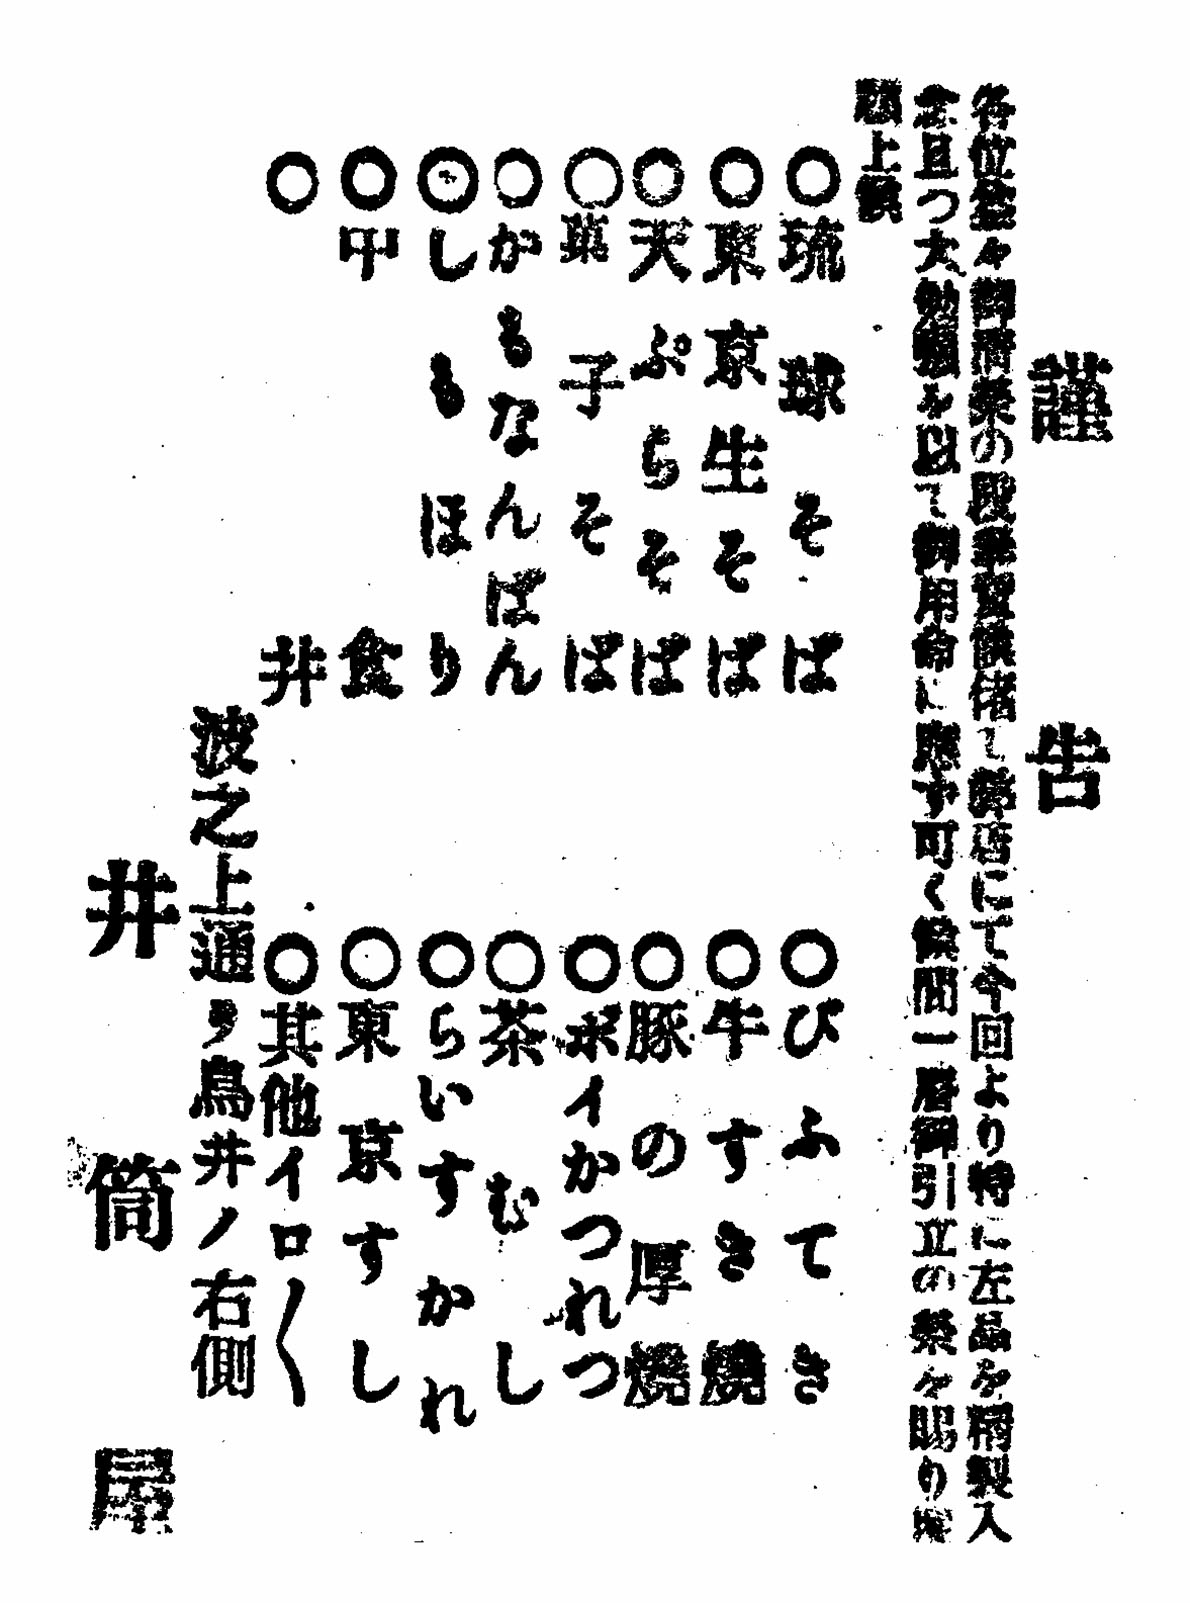 謹告
各位益々御清榮の段奉賀候偖て弊店にて今回より特に左品を精製入
念且つ大勉強を以て御用命に應ず可く候間一層御引立の榮を賜り度
願上候
○琉球そば
○東京生そば
○天ぷらそば
○菓子そば
○かもなんばん
○しもほり
○中食
○丼
○びふてき
○牛すき燒
○豚の厚燒
○ポイかつれつ
○茶むし
○らいすかれ
○東京すし
○其他イロ〱
波之上通リ鳥井ノ右側
井筒屋